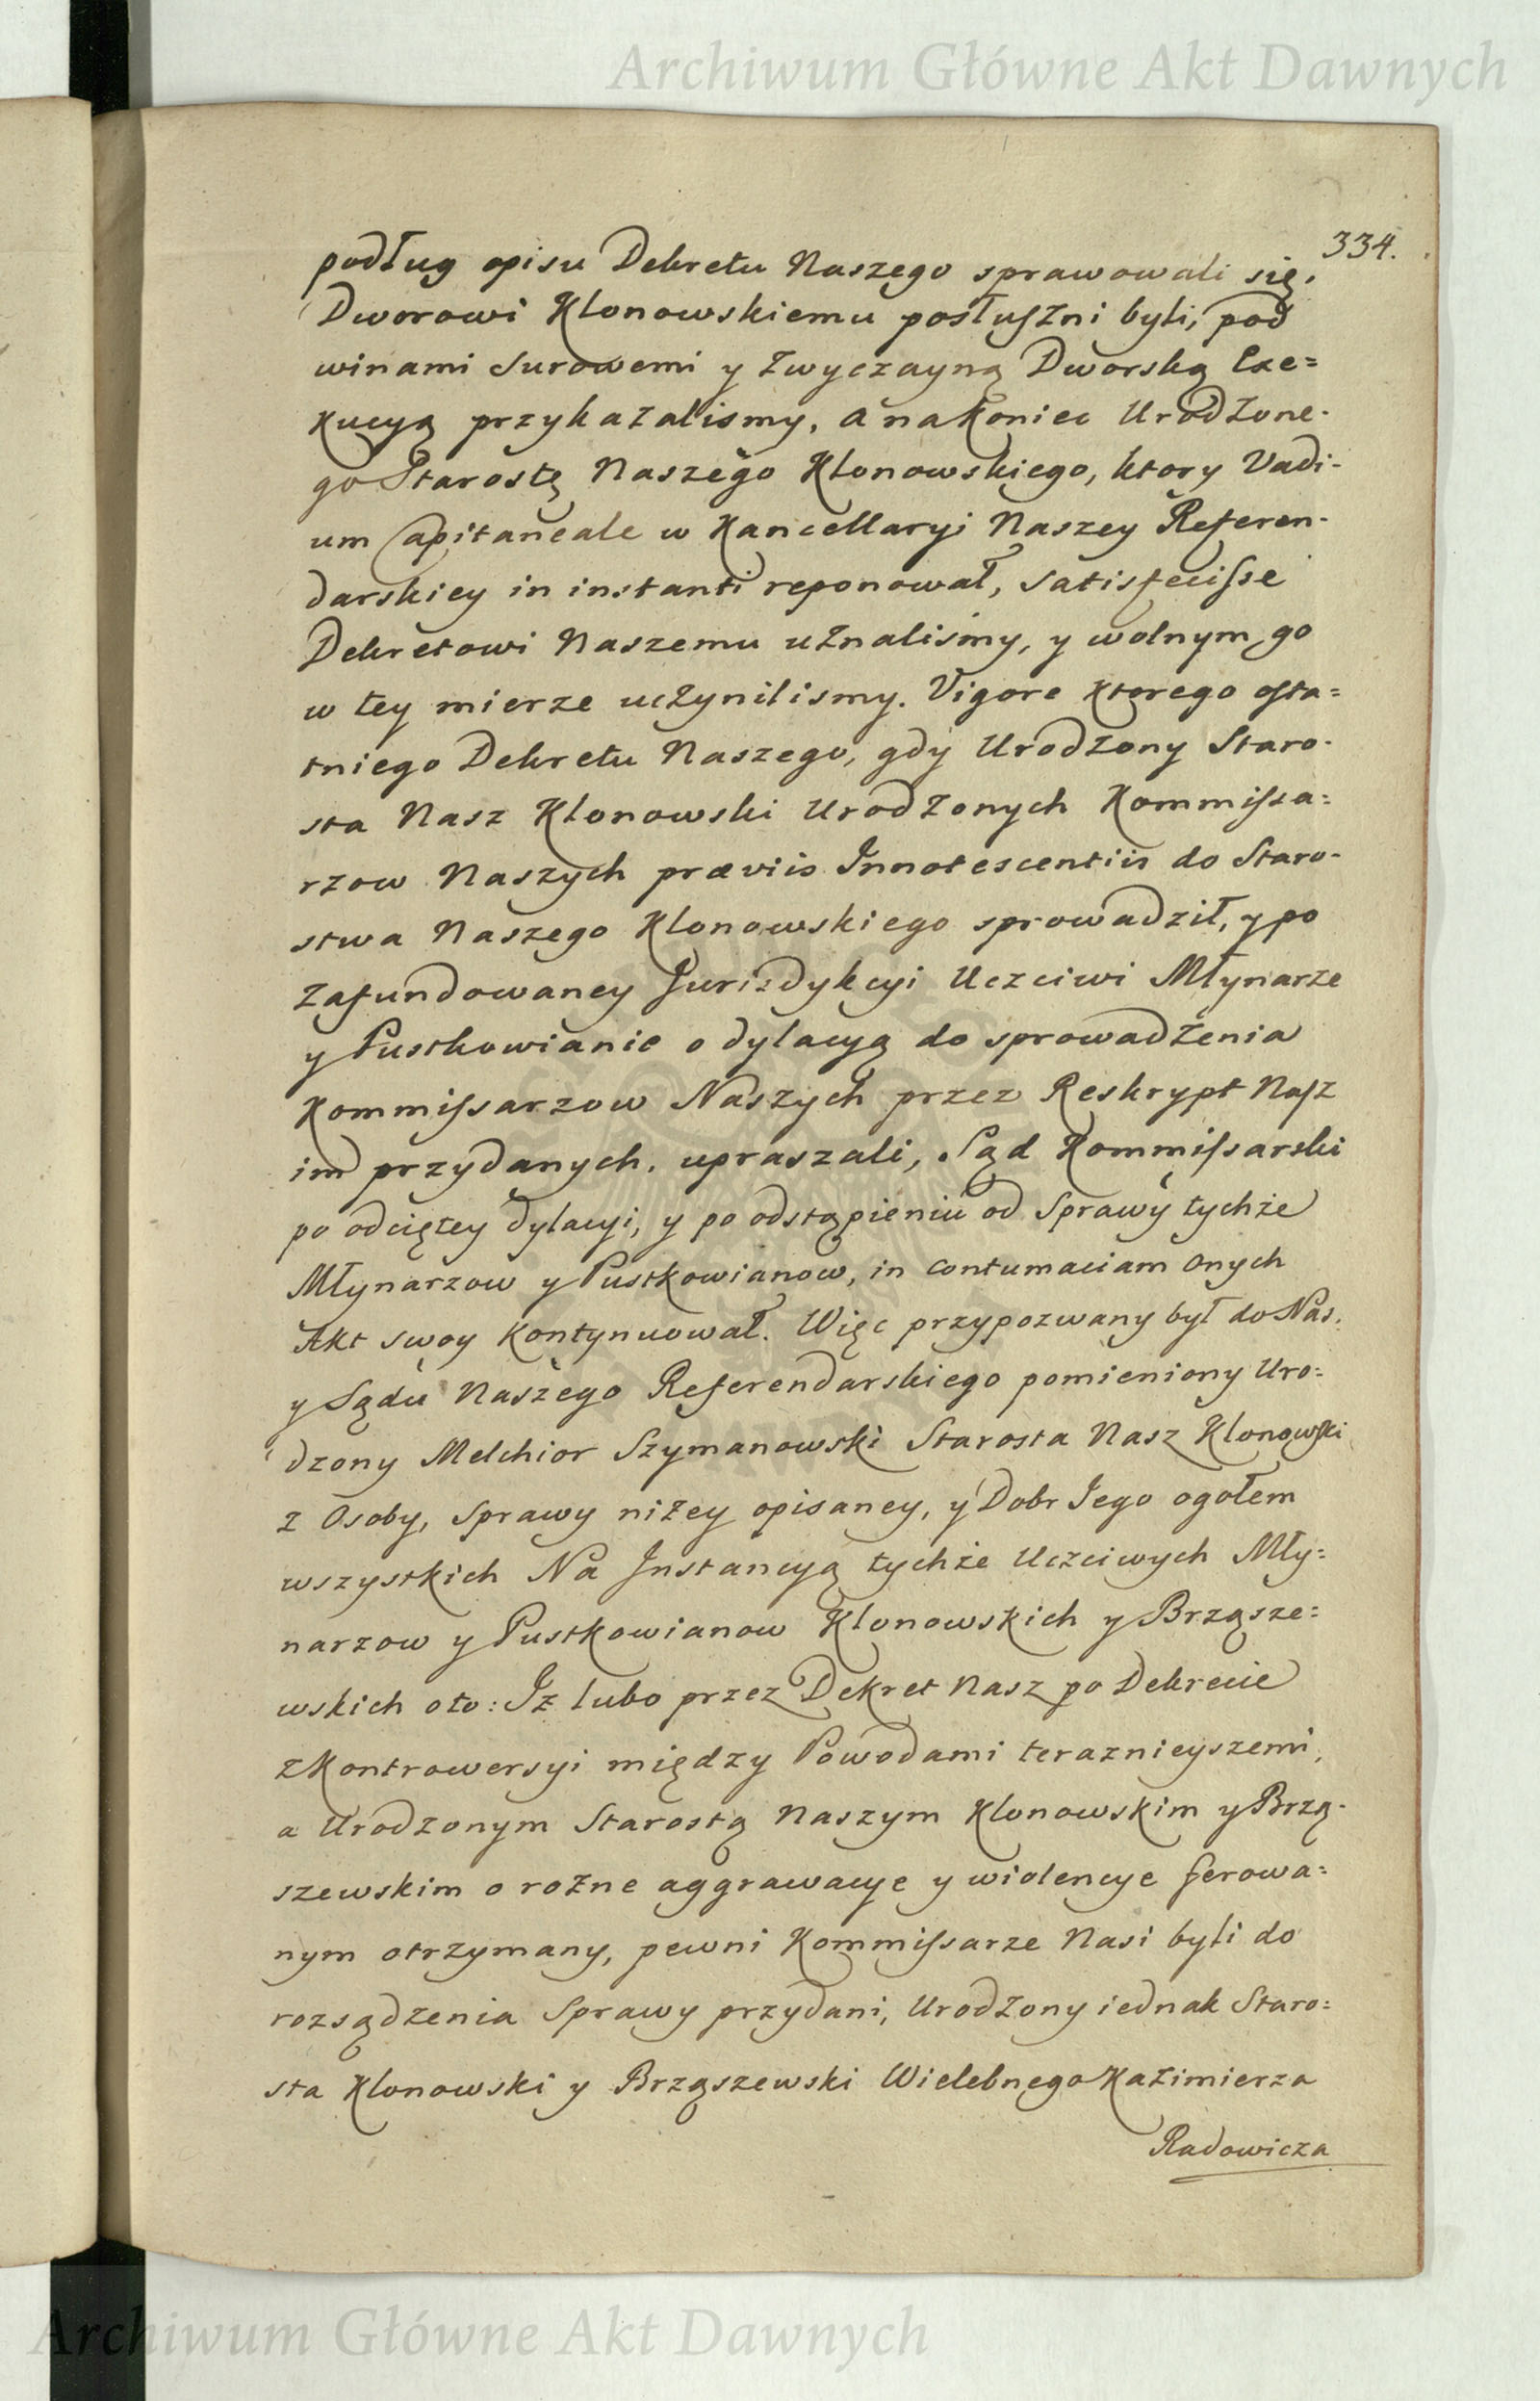 Archiwum Główne Akt Dawnych
334.
podług opisu Dekretu Naszego sprawowali się,
Dworowi Klonowskiemu posłuszni byli, pod
winami surowemi y zwyczayną Dworską Exe=
kucyą przykazalismy, a nakoniec Urodzone-
go Starostę Naszego Klonowskiego, ktory Vadi-
um Capitaneale w Kancellaryi Naszey Referen-
darskiey in instanti reponował, satisfecisse
Dekretowi Naszemu uznaliśmy, y wolnym go
w tey mierze uczynilismy. Vigore ktorego osta=
tniego Dekretu Naszego, gdy Urodzony Staro-
sta Nasz Klonowski Urodzonych Kommissa=
rzow Naszych præviis Innotescentiis do Staro-
stwa Naszego Klonowskiego sprowadził, y po
zafundowaney Jurizdykcyi Uczciwi Młynarze
y Pustkowianie o dylacyą do sprowadzenia
Kommissarzow Naszych przez Reskrypt Nasz
im przydanych, upraszali, Sąd Kommissarski
po odciętey dylacyi, y po odstąpieniu od Sprawy tychże
Młynarzow y Pustkowianow, in contumaciam onych
Akt swoy kontynuował. Więc przypozwany był do Nas,
y Sądu Naszego Referendarskiego pomieniony Uro=
dzony Melchior Szymanowski Starosta Nasz Klonowski
z Osoby, Sprawy niżey opisaney, y Dobr Jego ogołem
wszystkich Na Instancyą tychże Uczciwych Mły=
narzow y Pustkowianow Klonowskich y Brząsze=
wskich oto: Iz lubo przez Dekret Nasz po Dekrecie
z Kontrowersyi między Powodami teraznieyszemi,
a Urodzonym Starostą Naszym Klonowskim y Brzą-
szewskim o rożne aggrawacye y wiolencye ferowa=
nym otrzymany, pewni Kommissarze Nasi byli do
rozsądzenia Sprawy przydani, Urodzony iednak Staro=
sta Klonowski y Brząszewski Wielebnego Kazimierza
Radowicza
Archiwum Główne Akt Dawnych